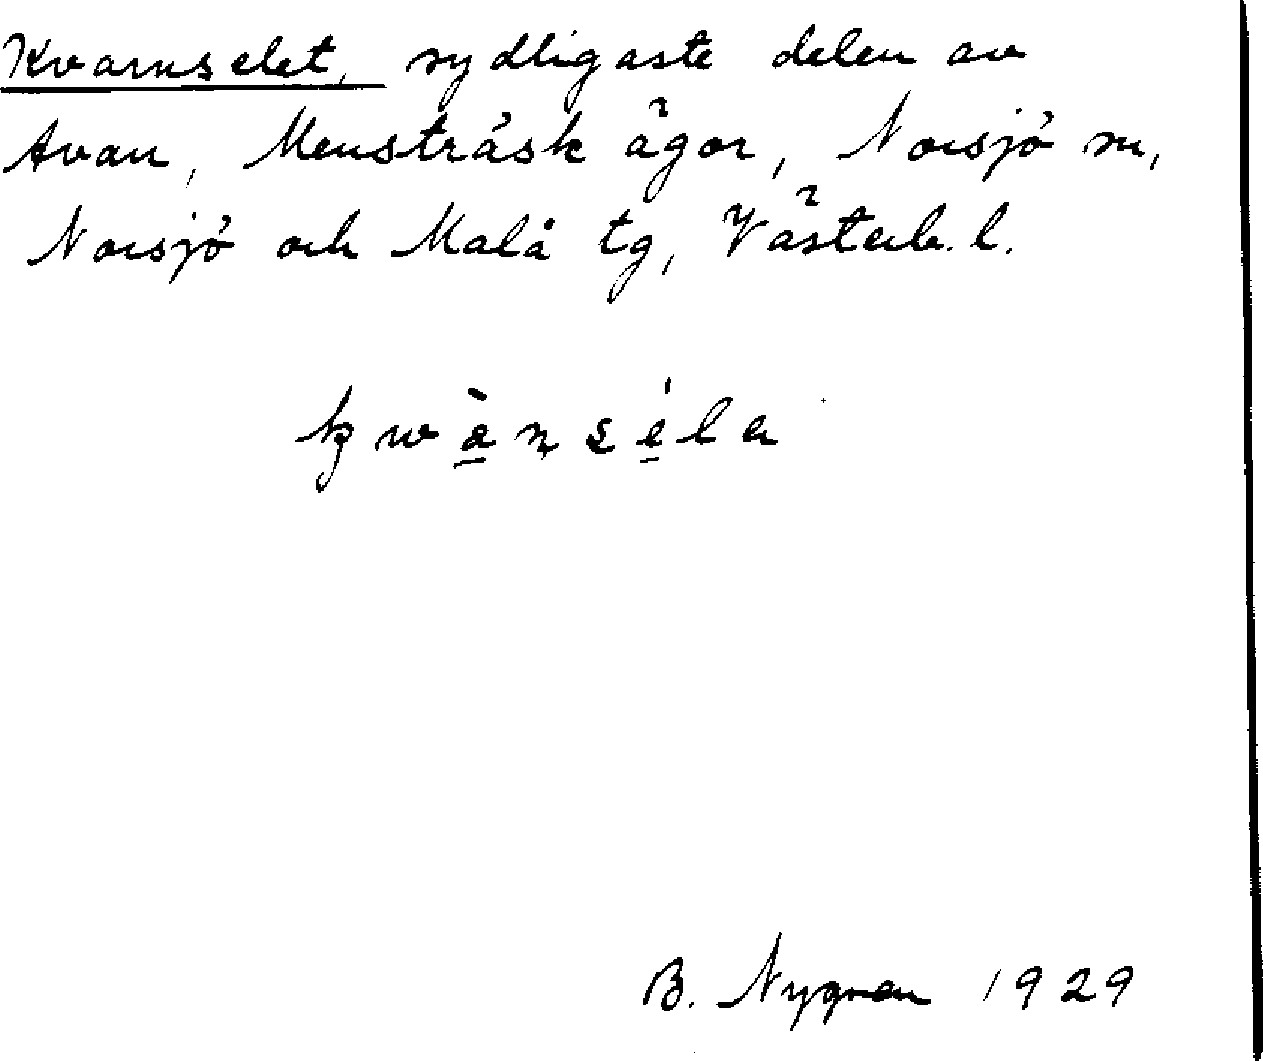 Kvarnselet, sydligaste delen av
Avan, Mensträsk ägor, Norsjö sn,
Norsjö och Malå tg, Västerb. l.
kwà̲n sé̲la
B. Nygren 1929